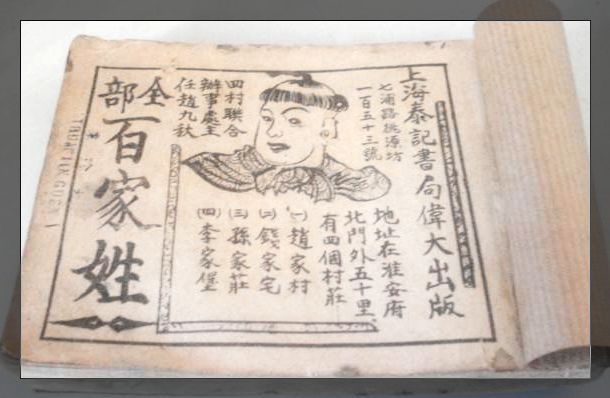 上海泰記書局偉大出版
七浦路桃源坊
一百五十三號
地址在淮安府
北門外五十里
有四個村莊
㈠趙家村
㈡錢家宅
㈢孫家莊
㈣李家堡
四村聯合
辦事處主
任趙九秋
全部
百家姓